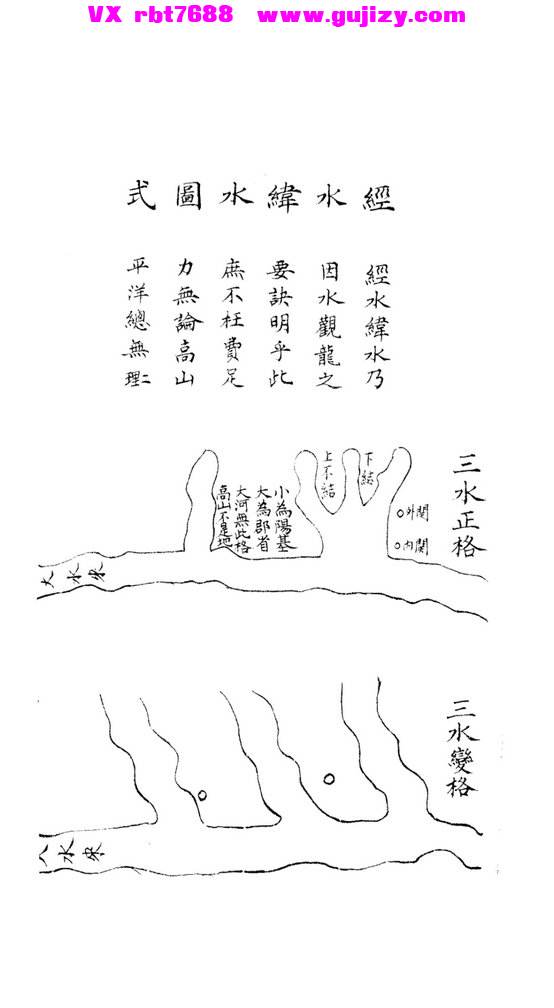 VX rbt7688 www.gujizy.com
經水緯水圖式
經水緯水乃
因水觀龍之
要訣明乎此
庶不枉費足
力無論高山
平洋總無二理
三水正格
下結
上不結
外關
內關
小為陽基
大為郡省
大河無此格
高山不是地
大水來
三水變格
大水來